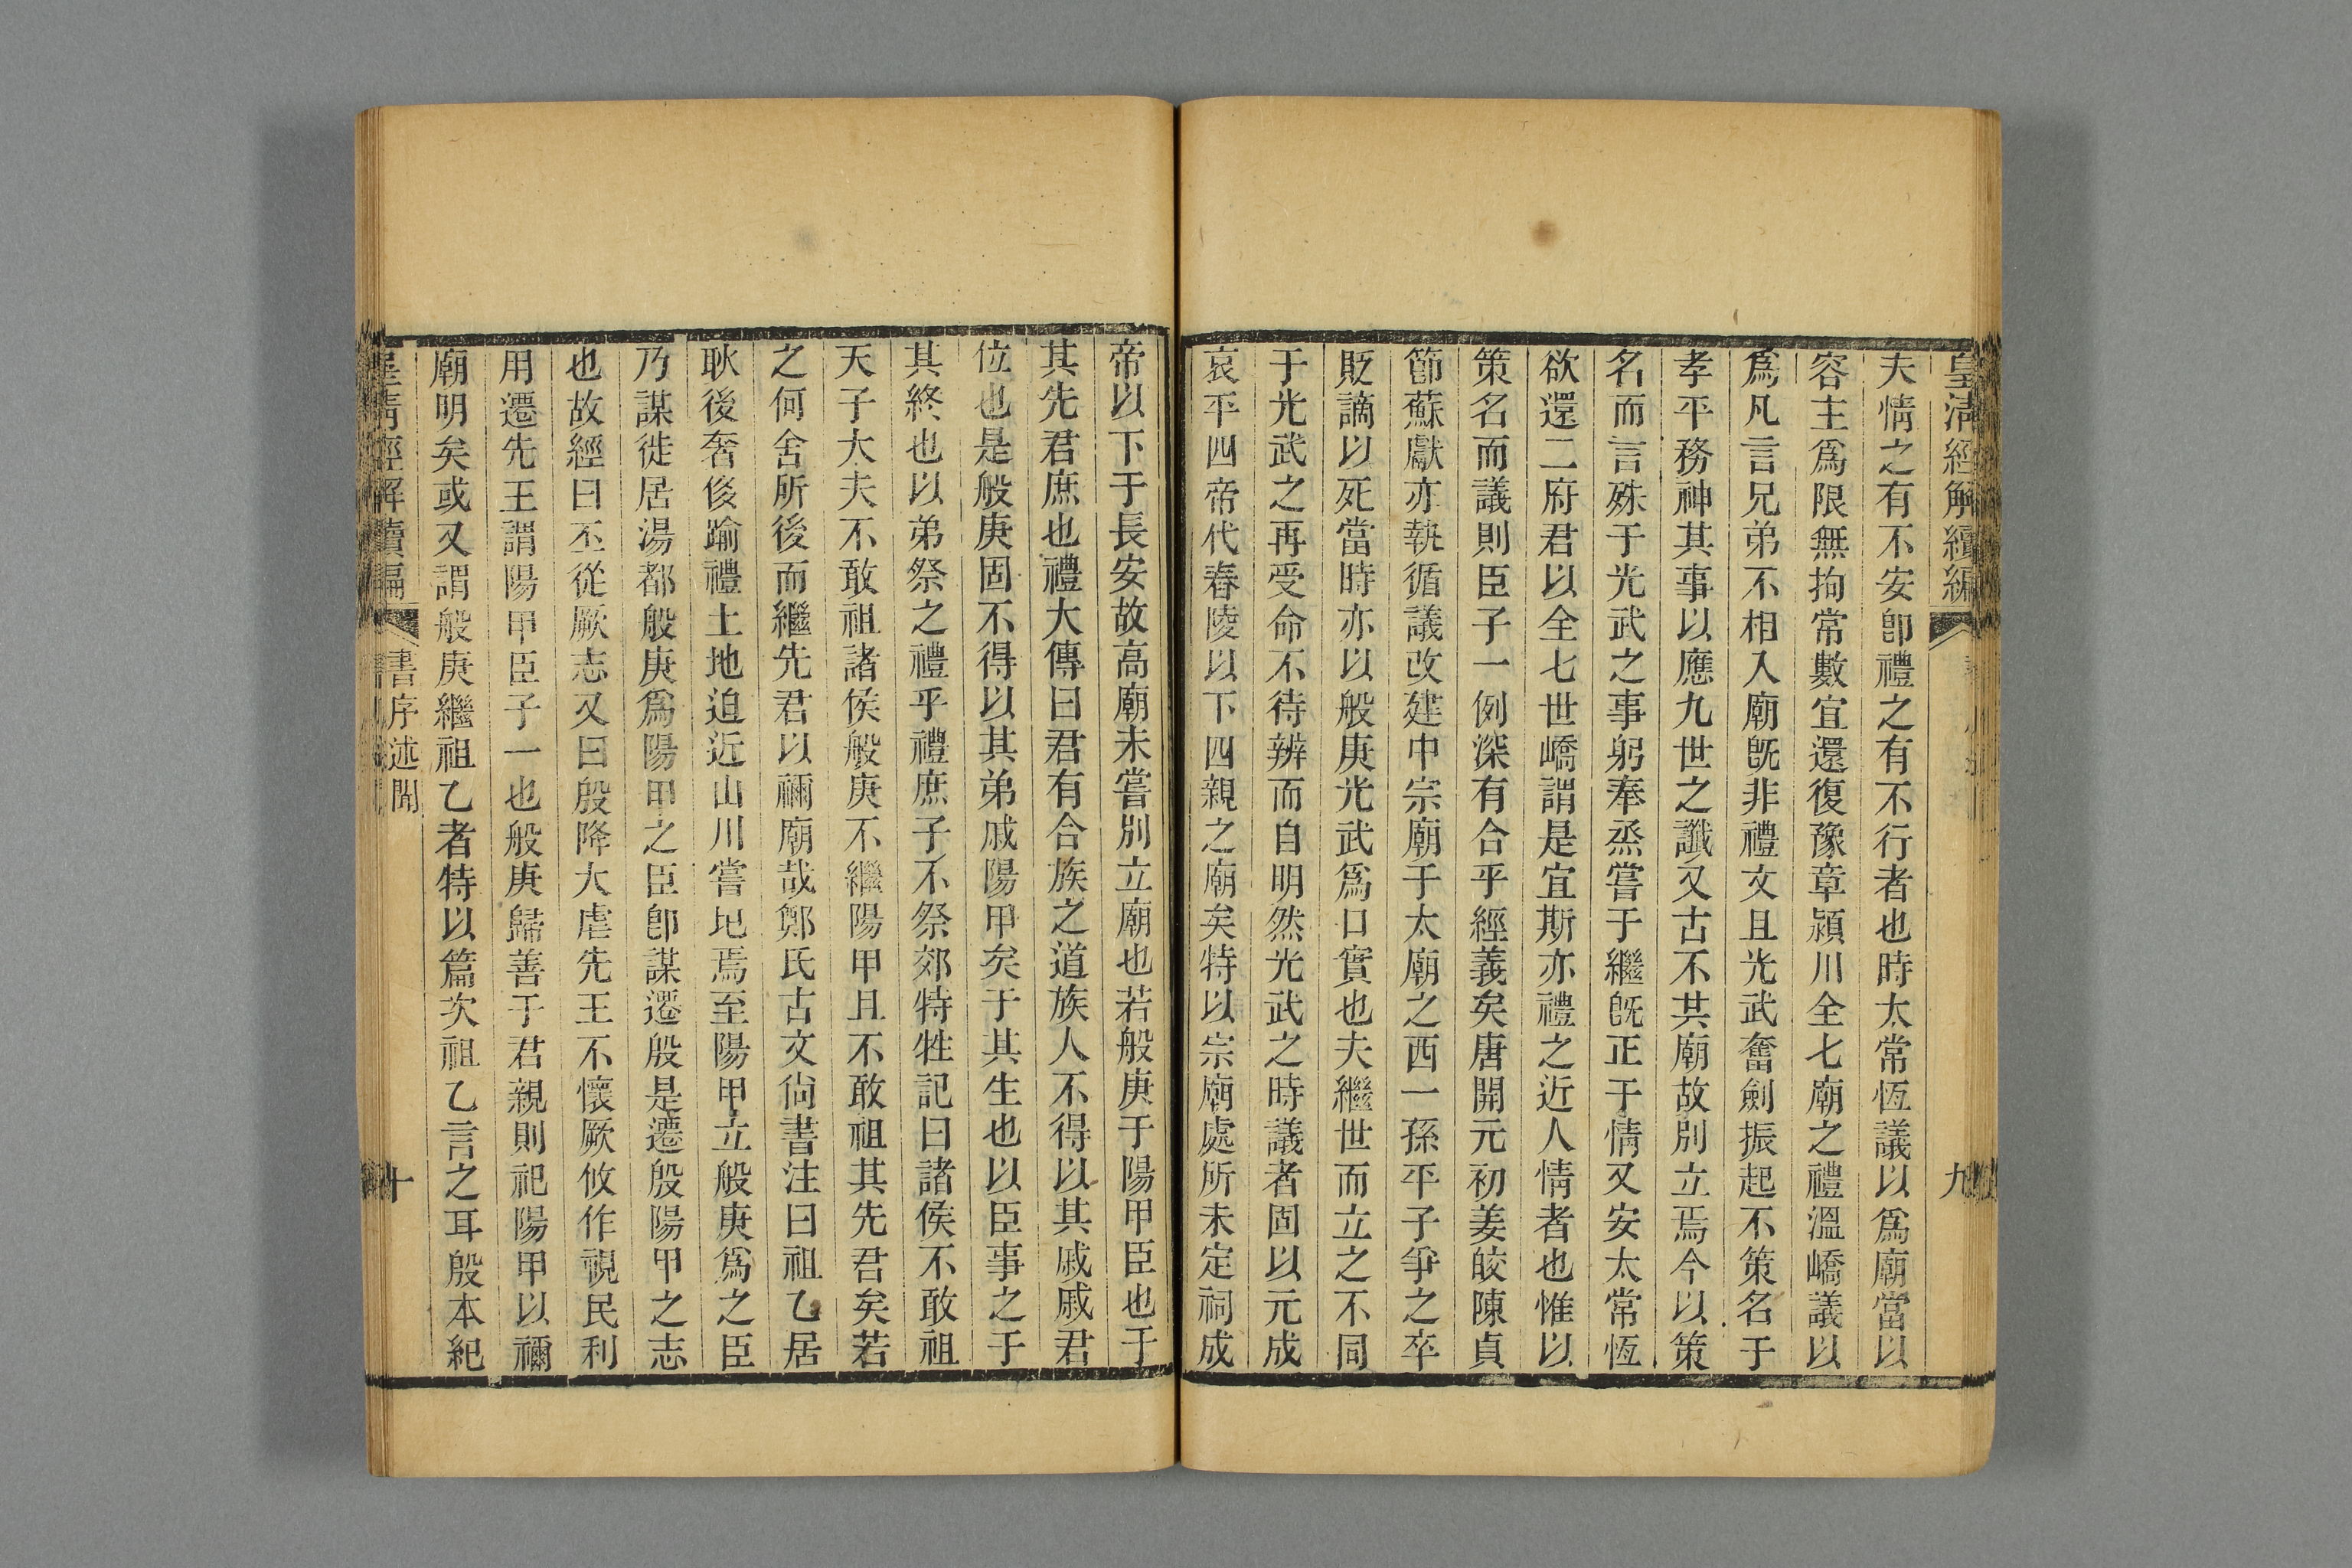 皇清經解續編
九
夫情之有不安卽禮之有不行者也時太常恆議以爲廟當以
容主爲限無拘常數宜還復豫章潁川全七廟之禮溫嶠議以
爲凡言兄弟不相入廟旣非禮文且光武奮劍振起不策名于
孝平務神其事以應九世之讖又古不共廟故別立焉今以策
名而言殊于光武之事躬奉烝嘗于繼旣正于情又安太常恆
欲還二府君以全七世嶠謂是宜斯亦禮之近人情者也惟以
策名而議則臣子一例深有合乎經義矣唐開元初姜皎陳貞
節蘇獻亦執循議改建中宗廟于太廟之西一孫平子爭之卒
貶謫以死當時亦以般庚光武爲口實也夫繼世而立之不同
于光武之再受命不待辨而自明然光武之時議者固以元成
哀平四帝代舂陵以下四親之廟矣特以宗廟處所未定祠成
帝以下于長安故高廟未嘗別立廟也若般庚于陽甲臣也于
其先君庶也禮大傳曰君有合族之道族人不得以其戚戚君
位也是般庚固不得以其弟戚陽甲矣于其生也以臣事之于
其終也以弟祭之禮乎禮庶子不祭郊特牲記曰諸侯不敢祖
天子大夫不敢祖諸侯般庚不繼陽甲且不敢祖其先君矣若
之何舍所後而繼先君以禰廟哉鄭氏古文尙書注曰祖乙居
耿後奢侈踰禮土地迫近山川嘗圮焉至陽甲立般庚爲之臣
乃謀徙居湯都般庚爲陽甲之臣卽謀遷般是遷殷陽甲之志
也故經曰丕從厥志又曰殷降大虐先王不懷厥攸作視民利
用遷先王謂陽甲臣子一也般庚歸善于君親則祀陽甲以禰
廟明矣或又謂般庚繼祖乙者特以篇次祖乙言之耳殷本紀
皇清經解續編
書序述聞
十